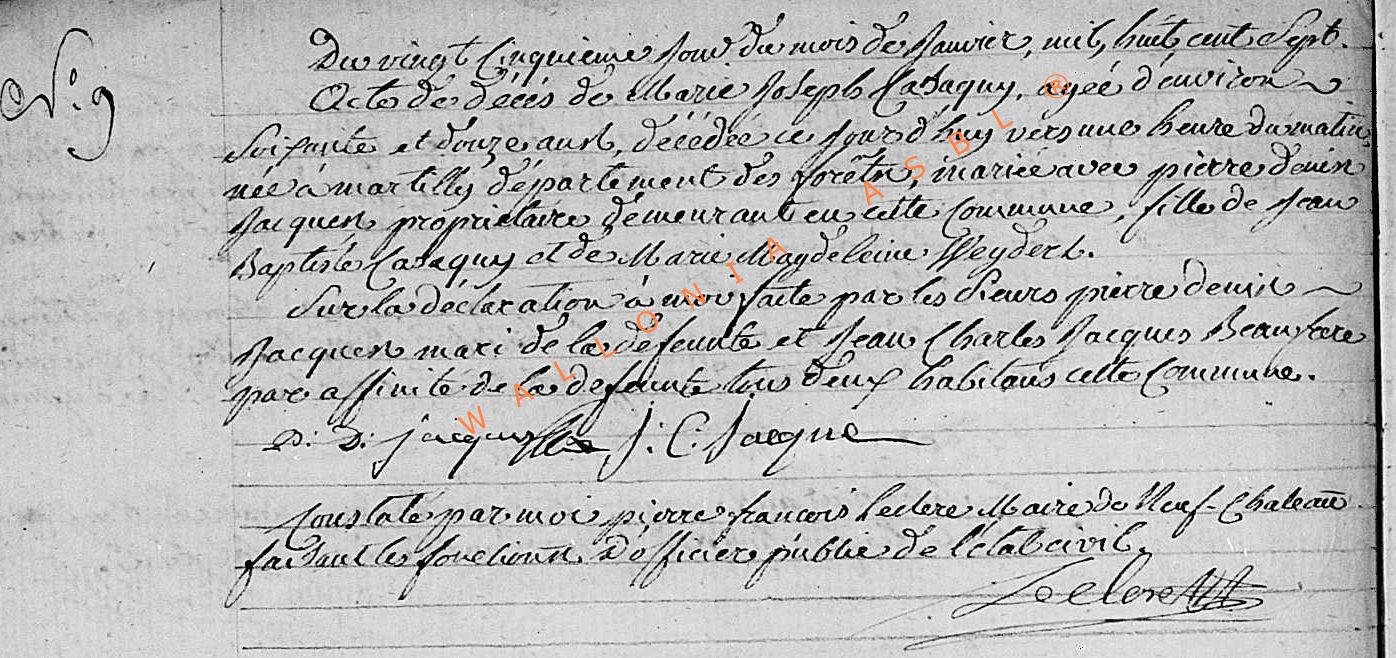 N.º 9
Du vingt Cinquieme Jour du mois de Janvier, mil, huit cent Sept.
Acte de décés de Marie Joseph Casaquy, agée d'environ
Soisante et douze ans, décédée ce jour d'huy vers une heure du matin
née à martilly département des forêts, mariée avec pierre denis
Jacques propriétaire demeurant en cette Commune, fille de Jean
Baptiste Casaquy et de Marie Magdeleine Weydert.
Sur la déclaration à moi faite par les Sieurs pierre denis
Jacques mari de la défeunte et Jean Charles Jacques Beaufrere
par affinité de la defeunte tous deux habitans cette Commune.
P: D: jacques J: C: Jacque
Constaté par moi pierre françois Leclerc Maire de Neuf-Chateau
faisant les fonctions D'officier public de l'état civil,
Leclerc
WALLONIA ASBL ®